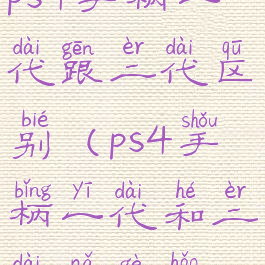 dài gēn èr dài qū
代跟二代区
bié shǒu
别（ps4手
bǐng yī dài hé èr
柄一代和二